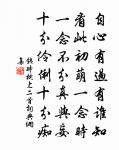 自心有過有誰知
看此初萌一念時
一念不分真與妄
十分伶俐十分癡
錢時枕上二首詞典網
集